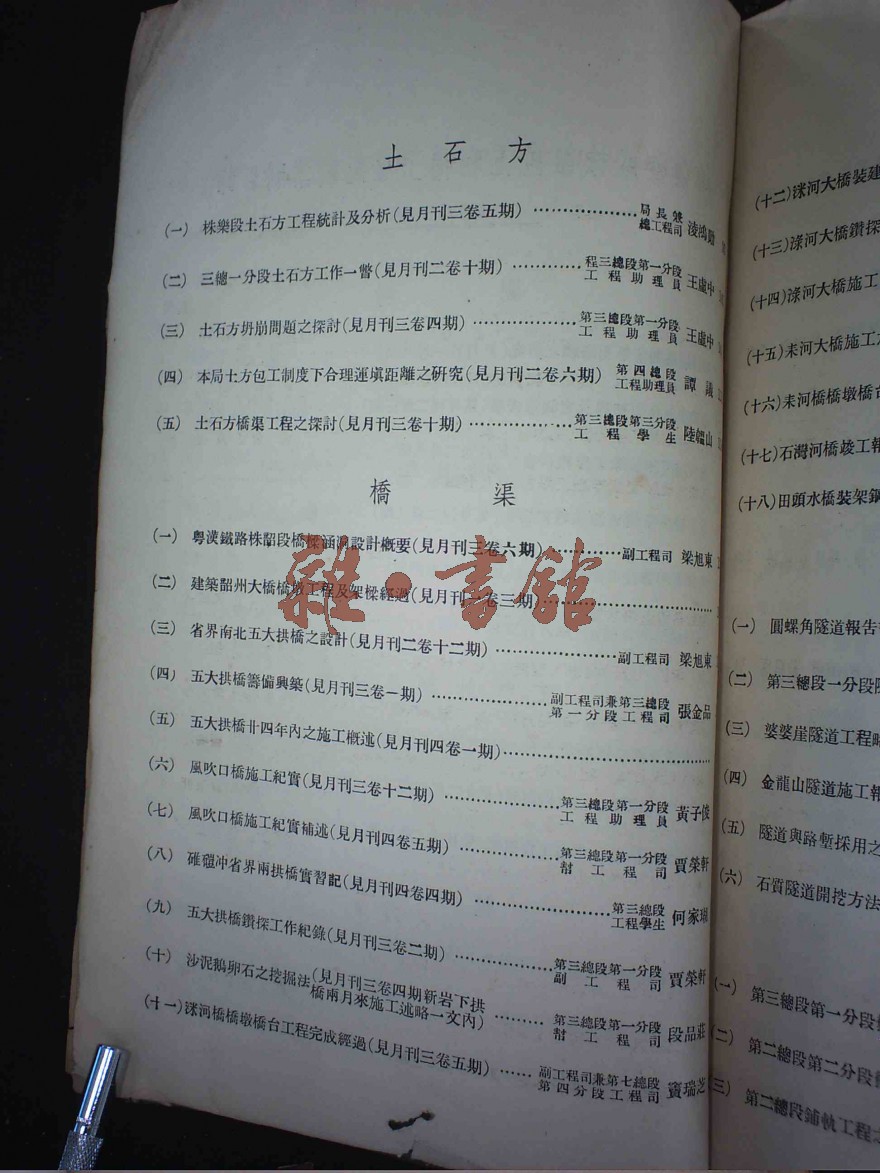 土石方
(一) 株樂段土石方工程統計及分析(見月刊三卷五期) ……………… 局長兼總工程司 淩鴻勛
(二) 三總一分段土石方工作一瞥(見月刊二卷十期) ………… 程三總段第一分段工程助理員 王處中
(三) 土石方坍崩問題之探討(見月刊三卷四期) ……………… 第三總段第一分段工程助理員 王處中
(四) 本局土方包工制度下合理運填距離之研究(見月刊二卷六期) 第四總段工程助理員 譚議
(五) 土石方橋渠工程之探討(見月刊三卷十期) ……………… 第三總段第三分段工程學生 陸韞山
橋渠
(一) 粵漢鐵路株韶段橋樑涵洞設計概要(見月刊三卷六期) ………… 副工程司 梁旭東
(二) 建築韶州大橋橋墩工程及架樑經過(見月刊 卷三期) …………………………
(三) 省界南北五大拱橋之設計(見月刊二卷十二期) ………………… 副工程司 梁旭東
(四) 五大拱橋籌備興築(見月刊三卷一期) ………………… 副工程司兼第三總段第一分段工程司 張金品
(五) 五大拱橋廿四年內之施工概述(見月刊四卷一期) …………………………
(六) 風吹口橋施工紀實(見月刊三卷十二期) ………………… 第三總段第一分段工程助理員 黃子俊
(七) 風吹口橋施工紀實補述(見月刊四卷五期) ……………… 第三總段第一分段幇工程司 賈榮軒
(八) 碓磑冲省界兩拱橋實習記(見月刊四卷四期) ……………… 第三總段工程學生 何家
(九) 五大拱橋鑽探工作紀錄(見月刊三卷二期) ……………… 第三總段第一分段副工程司 賈榮軒
(十) 沙泥鵝卵石之挖掘法(見月刊三卷四期新岩下拱橋兩月來施工述略一文內) ……… 第三總段第一分段幇工程司 段品莊
(十一) 洣河橋橋墩橋台工程完成經過(見月刊三卷五期) …… 副工程司兼第七總段第四分段工程司 竇瑞芝
雜·書館
(十二) 洣河大橋裝建
(十三) 淥河大橋鑽探
(十四) 淥河大橋施工
(十五) 耒河大橋施工
(十六) 耒河橋橋墩橋台
(十七) 石灣河橋竣工報
(十八) 田頭水橋裝架鋼
(一) 圓螺角隧道報告
(二) 第三總段一分段
(三) 婆婆崖隧道工程略
(四) 金龍山隧道施工報
(五) 隧道與路塹採用之
(六) 石質隧道開挖方法
(一) 第三總段第一分段
(二) 第二總段第二分段
(三) 第二總段鋪軌工程之